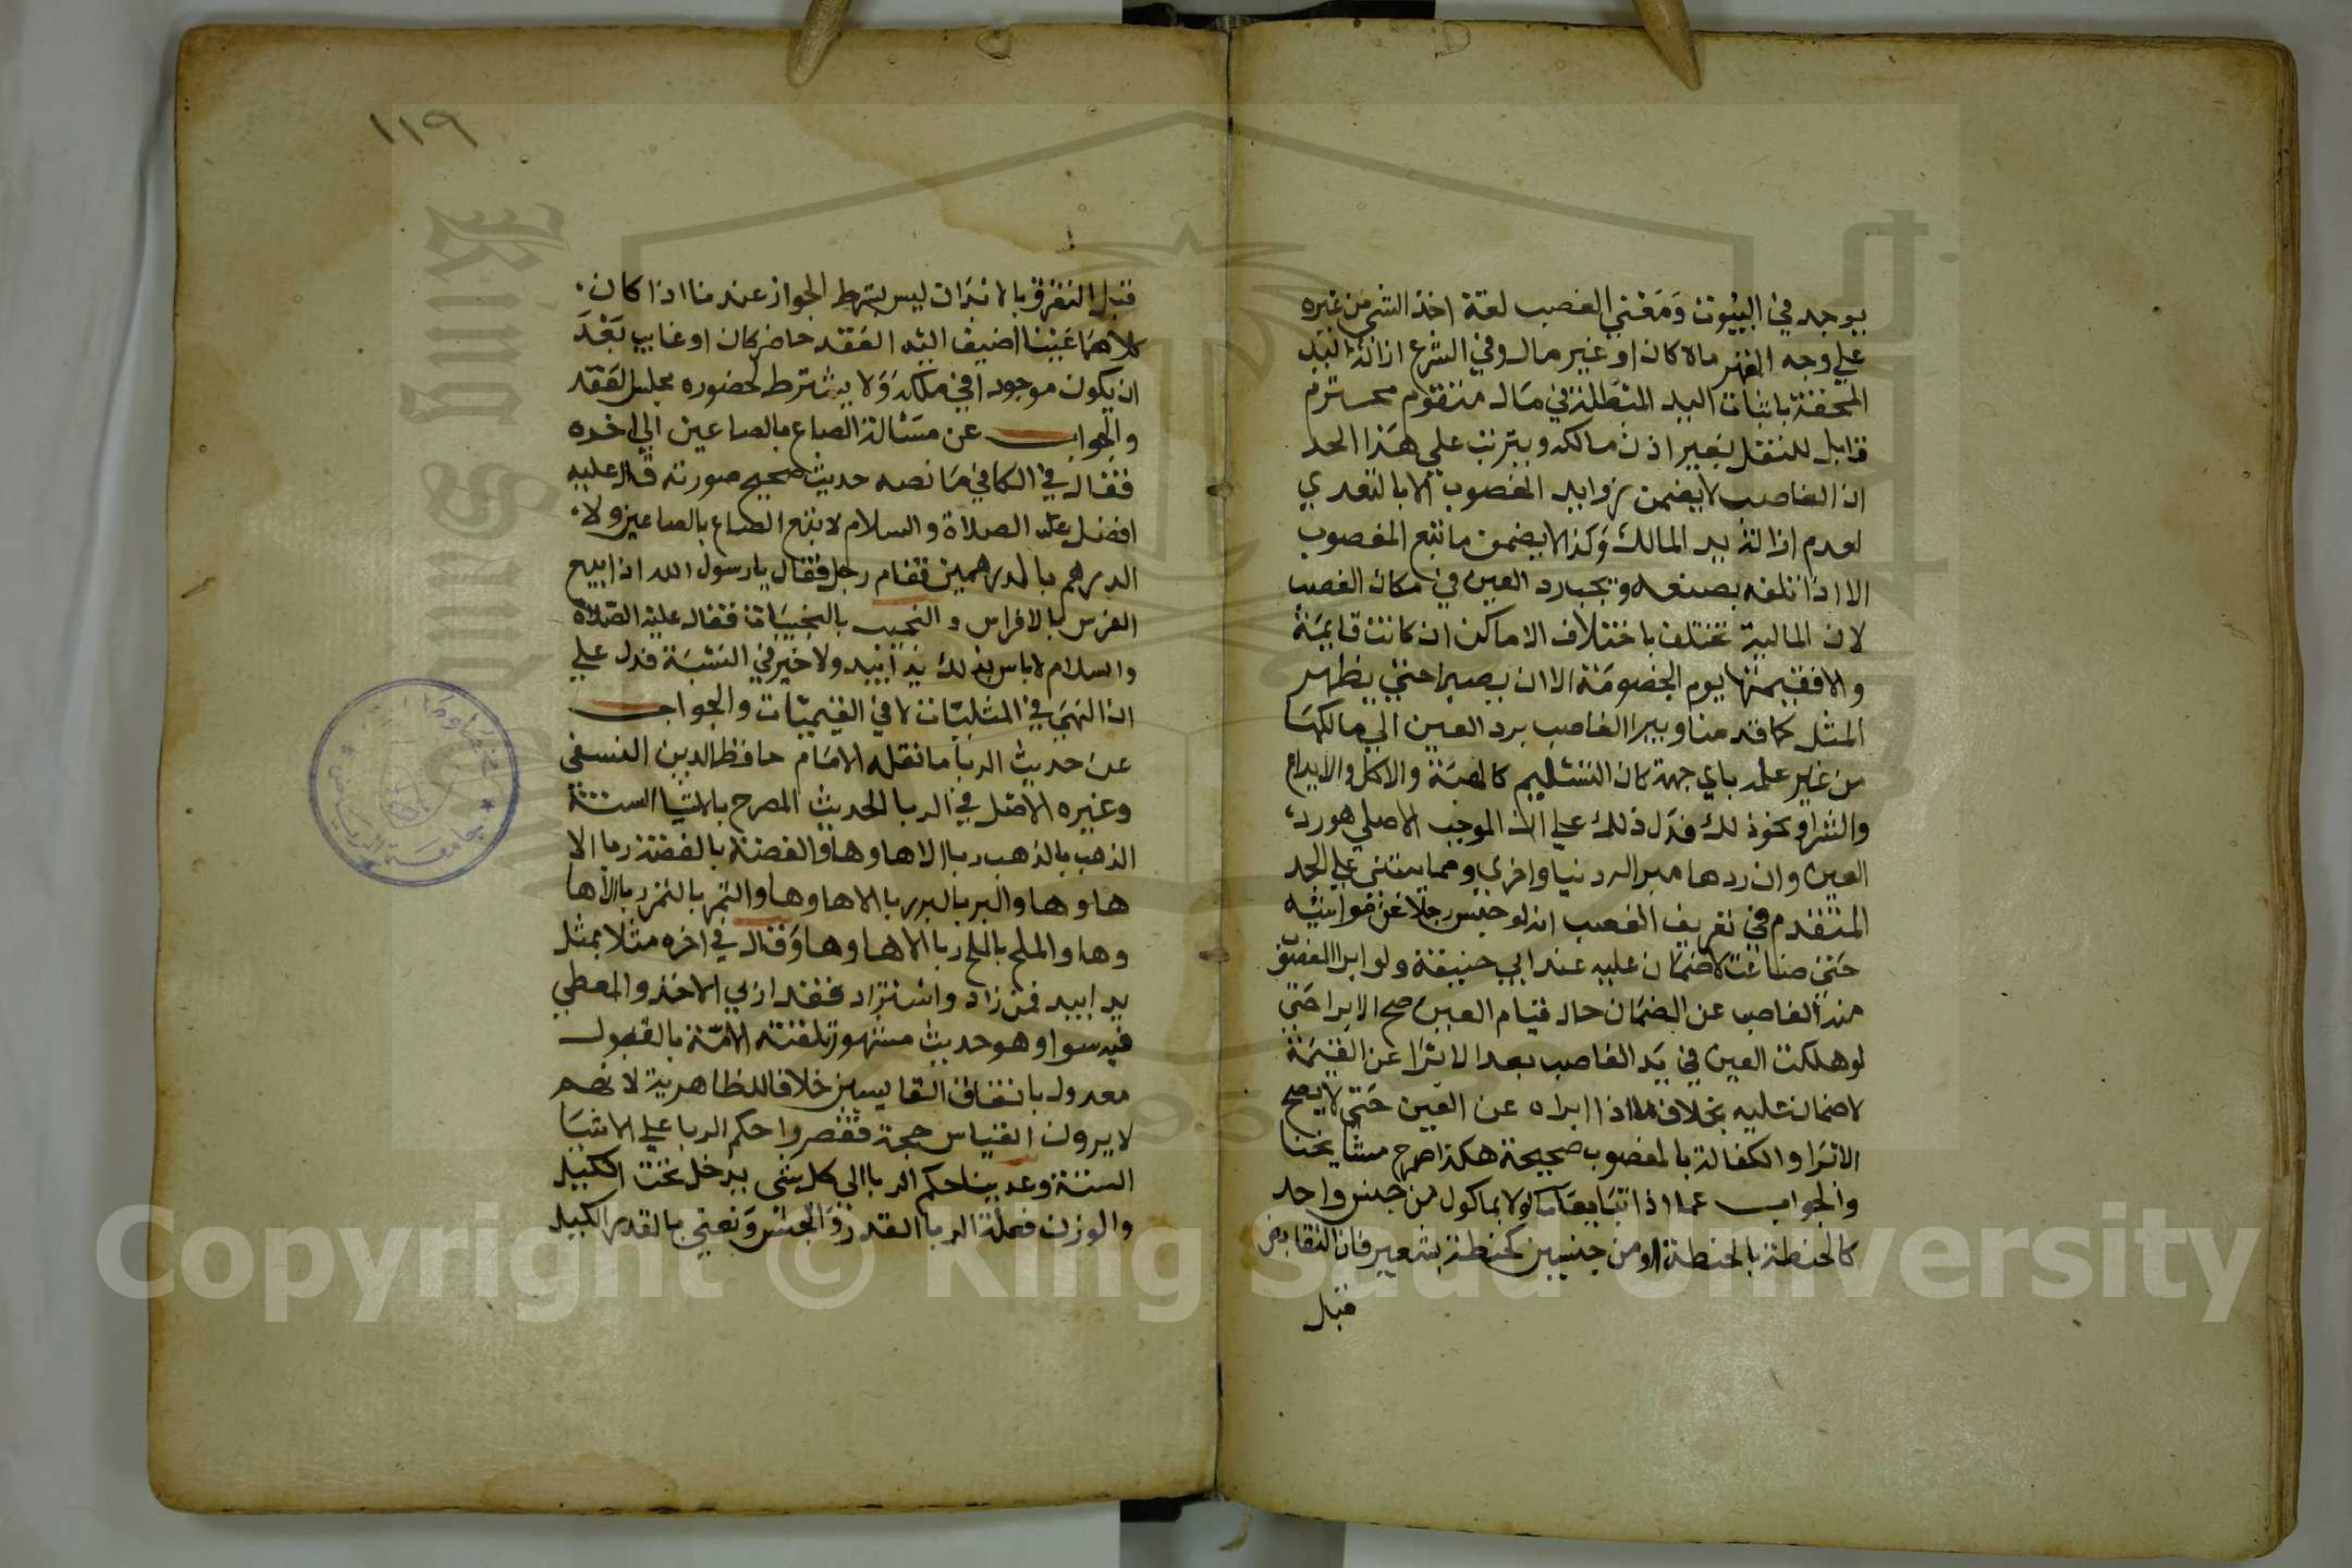 يوجد في البيوت وَمَعْني الغصب لغة اخذ الشي من غيره
علي وجه القهر مالا كان او غير مال وفي الشرع ازالة اليد
المحقة باثبات اليد المبطلة في مَال متقوم محترم
قابل للنقل بغير اذن مالكه ويترتب علي هَذا الحد
ان الغاصب لا يضمن زوايد المغصوب الا بالتعدي
لعدم ازالة يد المالك وَكذا لا يضمن منافع المغصوب
الا اذا تلفه بصنعه ويجب رد العين في مكان الغصب
لان المالية تختلف باختلاف الاماكن ان كانت قايمَة
والا فقيمتها يوم الخصومَة الا ان يصبر حتي يظهر
المثل كما قدمنا ويبرا الغاصب برد العين الي مالكهَا
من غير علمه باي جهة كان التسليم كالهبَة والاكل والايداع
والشرا ونحو ذلك فدَل ذلك علي ان الموجب الاصلي هو رد
العين وان ردها مبرا له دنيا واخري ومما يبتني علي الحد
المتقدم في تعريف الغصب انه لو حبَس رجلا عن مواشيه
حَتي ضاعت لا ضمَان عليه عند ابي حنيفة ولو ابرا المغصوب
منه الغاصب عن الضمَان حال قيام العين صح الابرا حَتي
لو هلكت العين في يَد الغاصب بعد الابَرا عن القيمَة
لا ضمان عليه بخلاف ما اذا ابراه عن العين حَتي لا يصح
الابَرا والكفالة بالمغصوب صحيحة هكذا صرح مشايخنا
والجواب عما اذا تبَايعَا ماكولا بماكول من جنس واحد
كالحنطة بالحنطة او من جنسين كحنطة بشعير فان التقابض
قبل
١١٩
قبل التفرق بالابدَان ليس بشرط الجواز عندنا اذا كان
كلاهمَا عَيْنا اضيف اليْه العَقد حاضر كان او غايب بَعْدَ
ان يكون موجودا في ملكه وَلا يشترط لحضوره مجلس العَقد
والجواب عن مسْالة الصاع بالصاعين الي اخره
فقال في الكافي مَا نصه حديث صحيح صورته قال عليه
افضل الصلاة والسلام لا بتع الصاع بالصاعين ولا
الدرهم بالدرهمين فقام رجل فقال يا رسول الله اذا ابيع
الفرس بالافراس والنجيب بالنجيبَات فقال عليْه الصلاة
والسلام لا باس بذلك يدا بيد ولا خير في النسْيَة فدل علي
ان النهيَ في المثليَّات لا في القيميَّات والجواب
عن حديث الربا ما نقله الامَام حافظ الدين النسفي
وغيره الاصْل في الربا الحديث المصرح بالاشيا الستة
الذهب بالذهب ربا الا ها وها والفضة بالفضة ربا الا
ها وها والبر بالبر ربا الا ها وها والتمر بالتمر ربا الا ها
وها والملح بالملح ربا الا ها وها وَقال في اخره مثلا بمثل
يدا بيد فمن زاد واستزاد فقد اربي الاخذ والمعطي
فيه سوا وهو حديث مشهور تلقته الامَّة بالقبول
معدول باتفاق القايسين خلافا للظاهرية لانهم
لا يرون القياس حجة فقصروا حكم الربا علي الاشيَا
الستة وعدينا حكم الربا الي كل شي يدخل تحت الكيل
والوزن فعلة الربا القدر وَالجنْس وَنعني بالقدر الكيل
Copyright © King Saud University